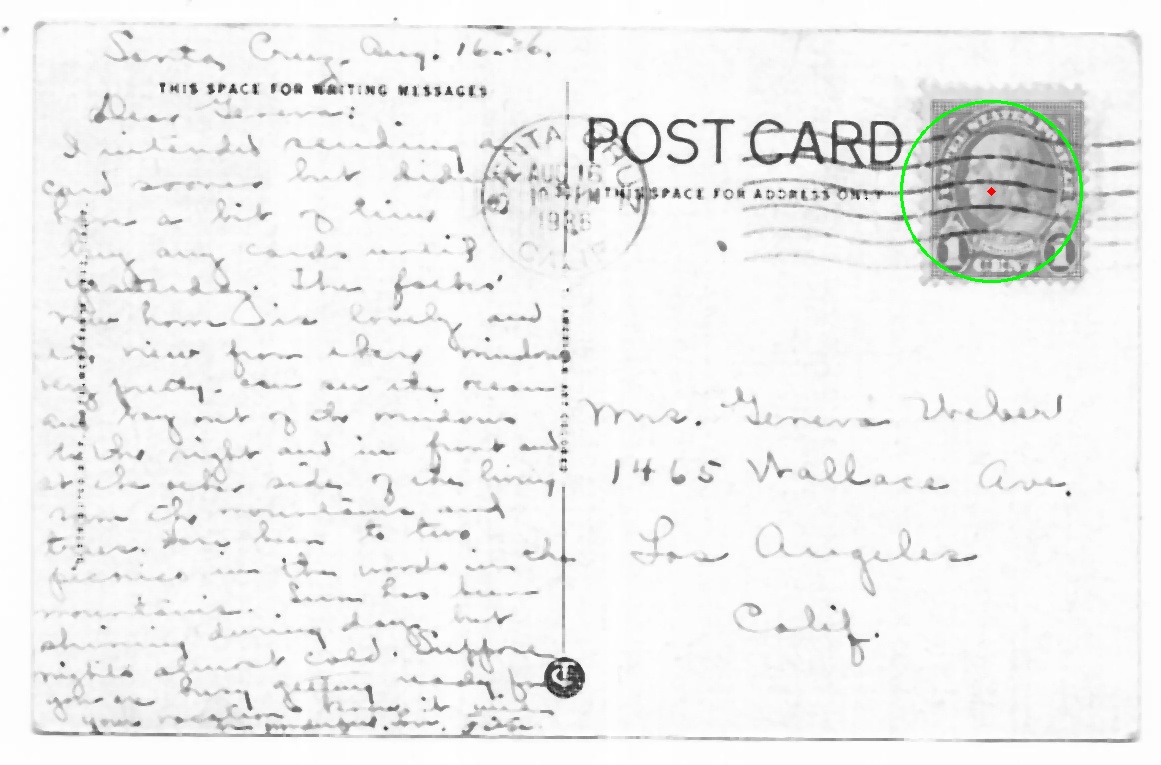 Santa Cruz, Aug. 16-26.
THIS SPACE FOR WRITING MESSAGES
Dear Geneva:
I intend sending a
card sooner but didn't
have a bit of time
buy any cards until
yesterday. The folks'
new home is lovely and
the view from their windows
very pretty. Can see the ocean
and bay out of the windows
to the right and in front and
at the other side of the living
room the mountains and
trees. Have been to two
picnics in the woods in the
mountains. Sun has been
shining during day but
nights almost cold. Suppose
you are busy getting ready for
your vacation
SANTA CRUZ
AUG 16
PM
1926
CALIF
POST CARD
THIS SPACE FOR ADDRESS ONLY
1 CENT 1
Mrs. Geneva Weber
1465 Wallace Ave.
Los Angeles
Calif.